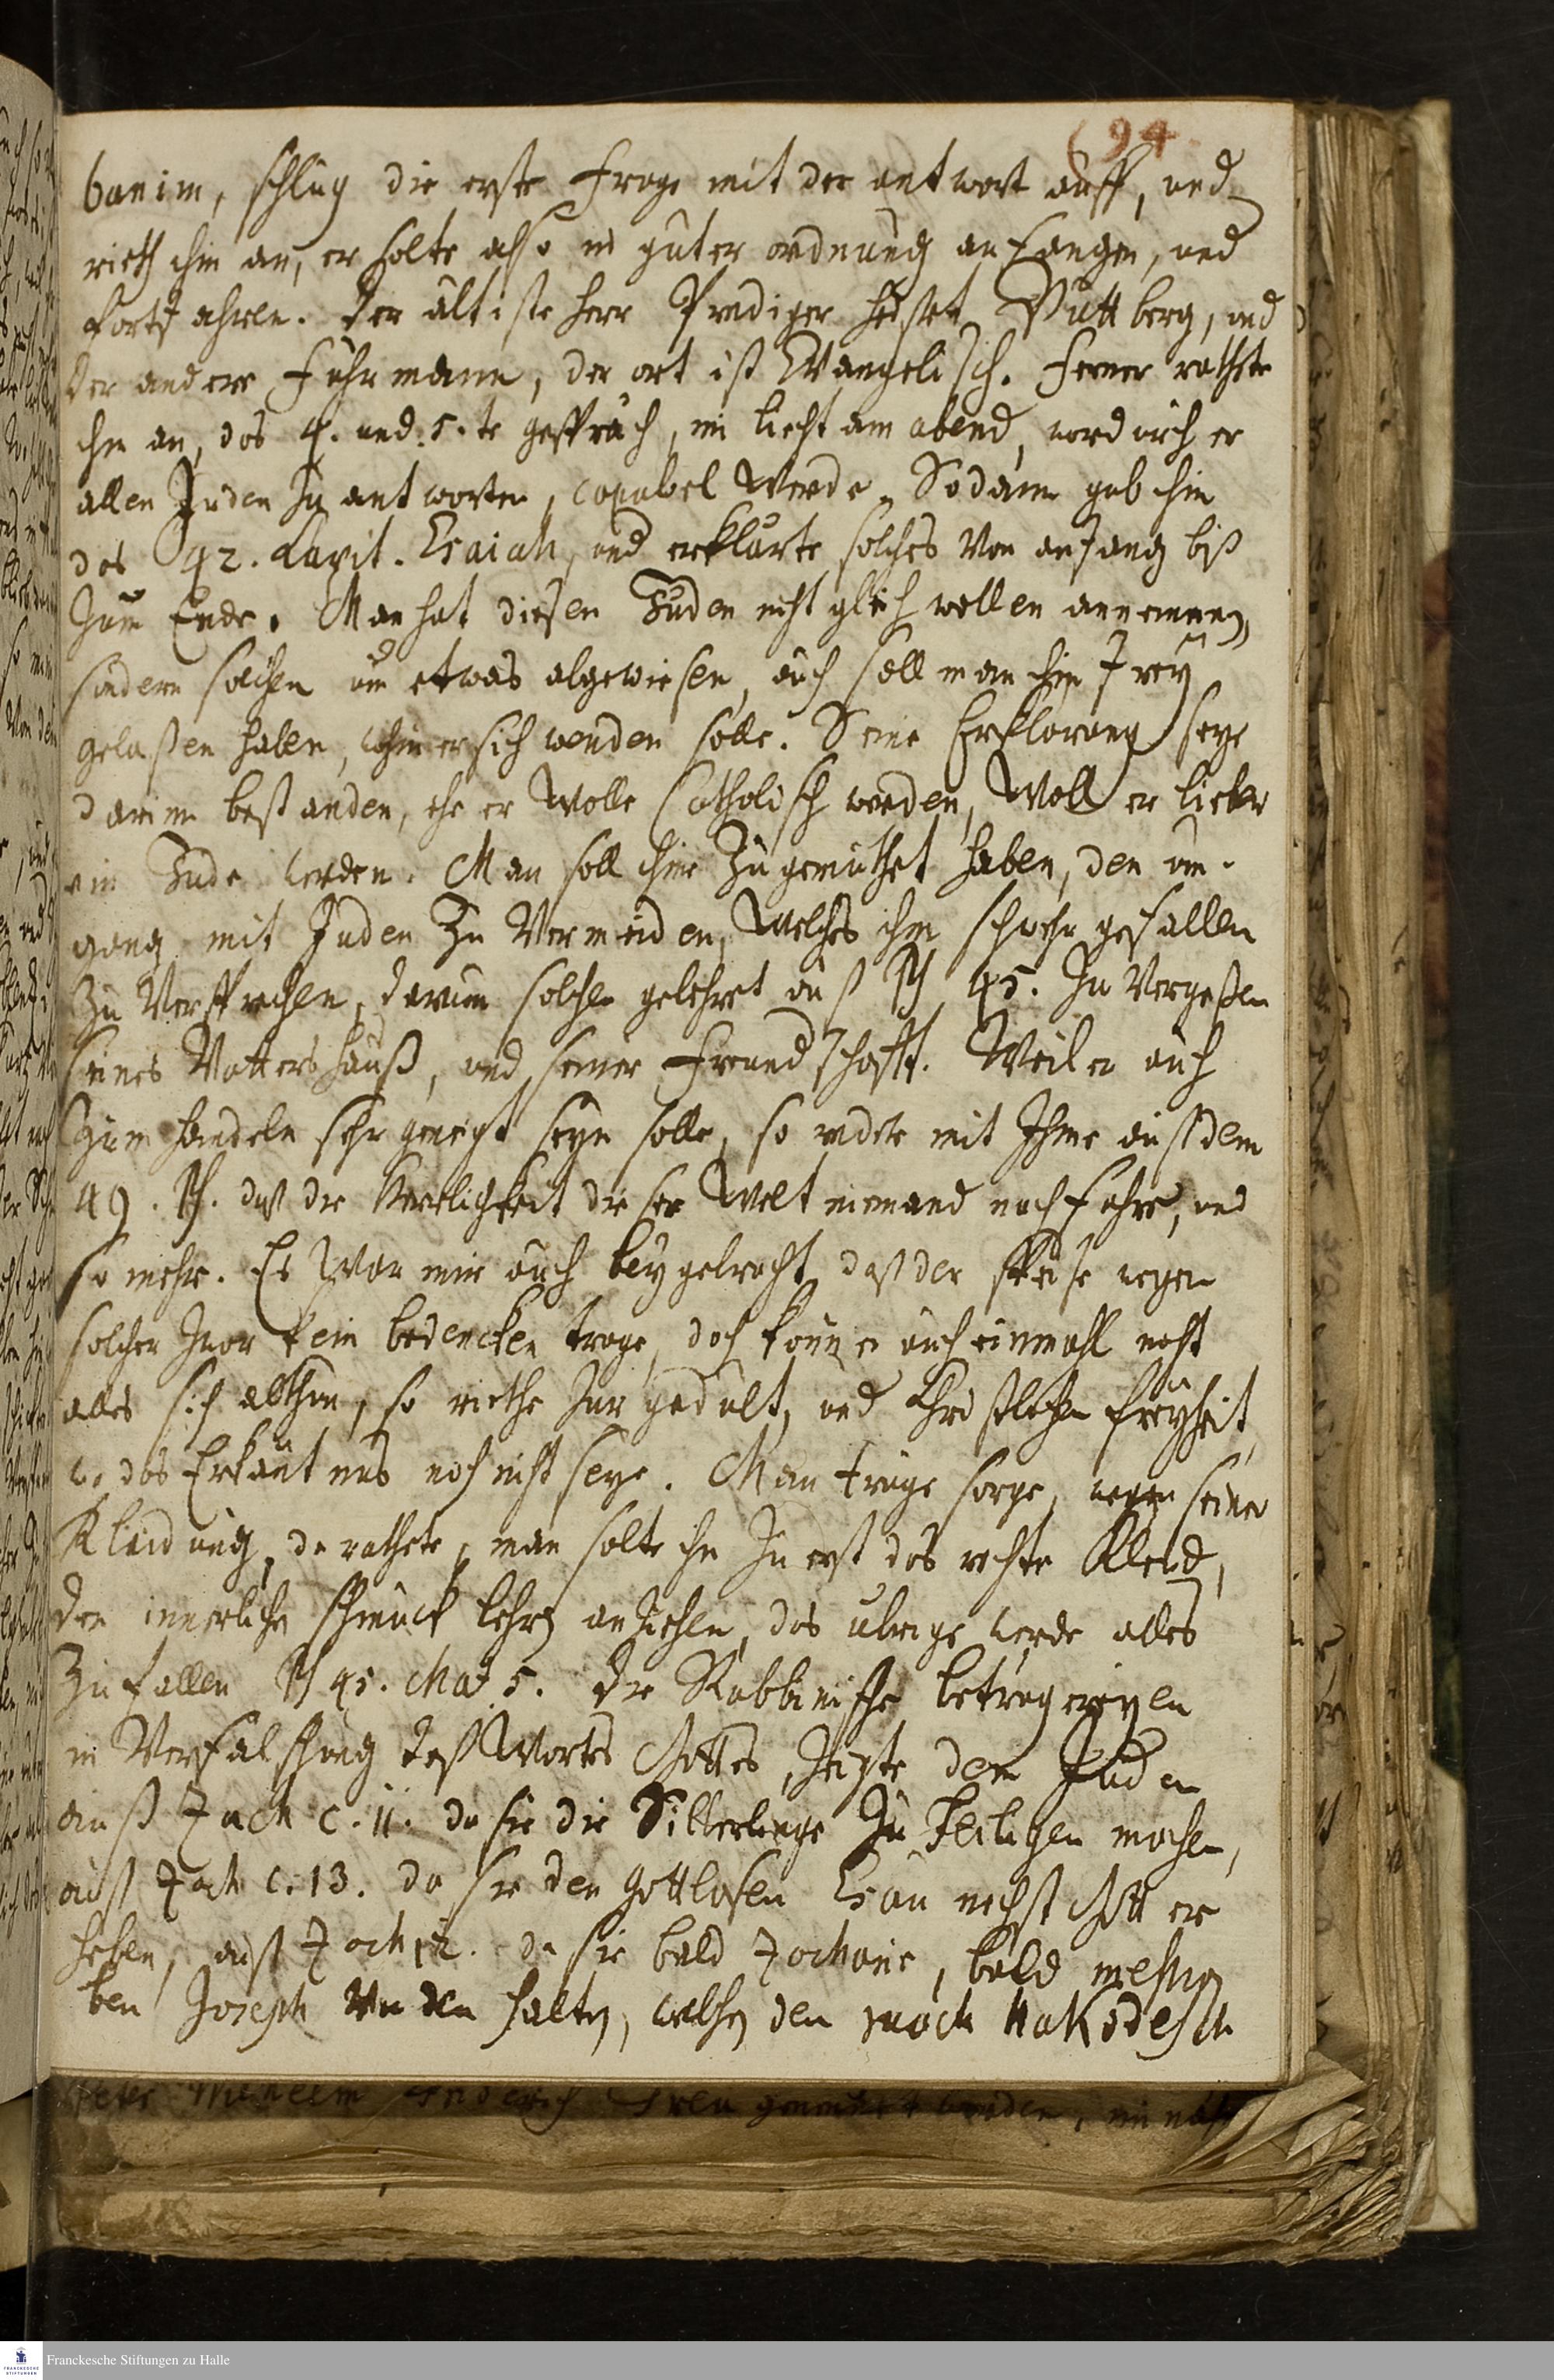 (94
banim, schlug die erste Frage mit der antwort auff, und
rieth ihm an, er solte also in guter ordnung anfangen, und
fortfahren. Der ältiste Herr Prediger heisset Puttberg, und
der andere Fuhrmann, der ort ist Evangelisch. Ferner rathete
ihm an, das 4. und 5.te gespräch, im licht am abend, wordurch er
allen Juden zu antworten, capabel werde. Sodann gab ihm
das 42. Capit. Esaiah, und erklärte solches von anfang biß
zum Ende. Man hat diesen Juden nicht gleich wollen annemmen,
sondern solchen um etwas abgewiesen, auch soll man ihm frey
gelaßen haben, wohin er sich wenden solle. Seine Erklärung seye
darinn bestanden, ehe er wolle Catholisch werden, woll er lieber
ein Jude werden. Man soll ihme zugemuthet haben, den um-
gang mit Juden zu vermeiden, welches ihm schwehr gefallen
zu versprechen, darum solchen gelehret auß Ps 45. zu vergeßen
seines Vatters hauß, und seiner Freundschafft. Weil er auch
zum handeln sehr geneigt seyn solle, so redete mit Ihme auß dem
49. Ps. daß die Herrlichkeit dieser Welt niemand nachfahre, und
so mehr. Es war mir auch beygebracht, daß der speise wegen
solcher zwar kein bedencken trage, doch könne er auch einmahl nicht
alles sich abthun, so riethe zur gedult, und Christlichen freyheit,
wo das Erkäntnus noch nicht seye. Man truge sorge, wegen seiner
Kleidung, da rathete, man solte ihn zu erst das rechte Kleid,
den innerlichen schmuck lehren anziehen, das ubrige werde alles
zufallen Ps 45. Mat 5. Die Rabbinische betrugereyen
in Verfalschung deß Wortes Gottes, zeigte dem Juden
auß Zach c. 11. da sie die Silberlinge zu Heiligen machen,
auß Zach c. 13. da sie den gottlosen Esau nechst Gott er
heben, auß Zach 12. da sie bald Zachariæ, bald
ben Joseph halten, welchen den ruach hakodesch
Franckesche Stiftungen zu Halle